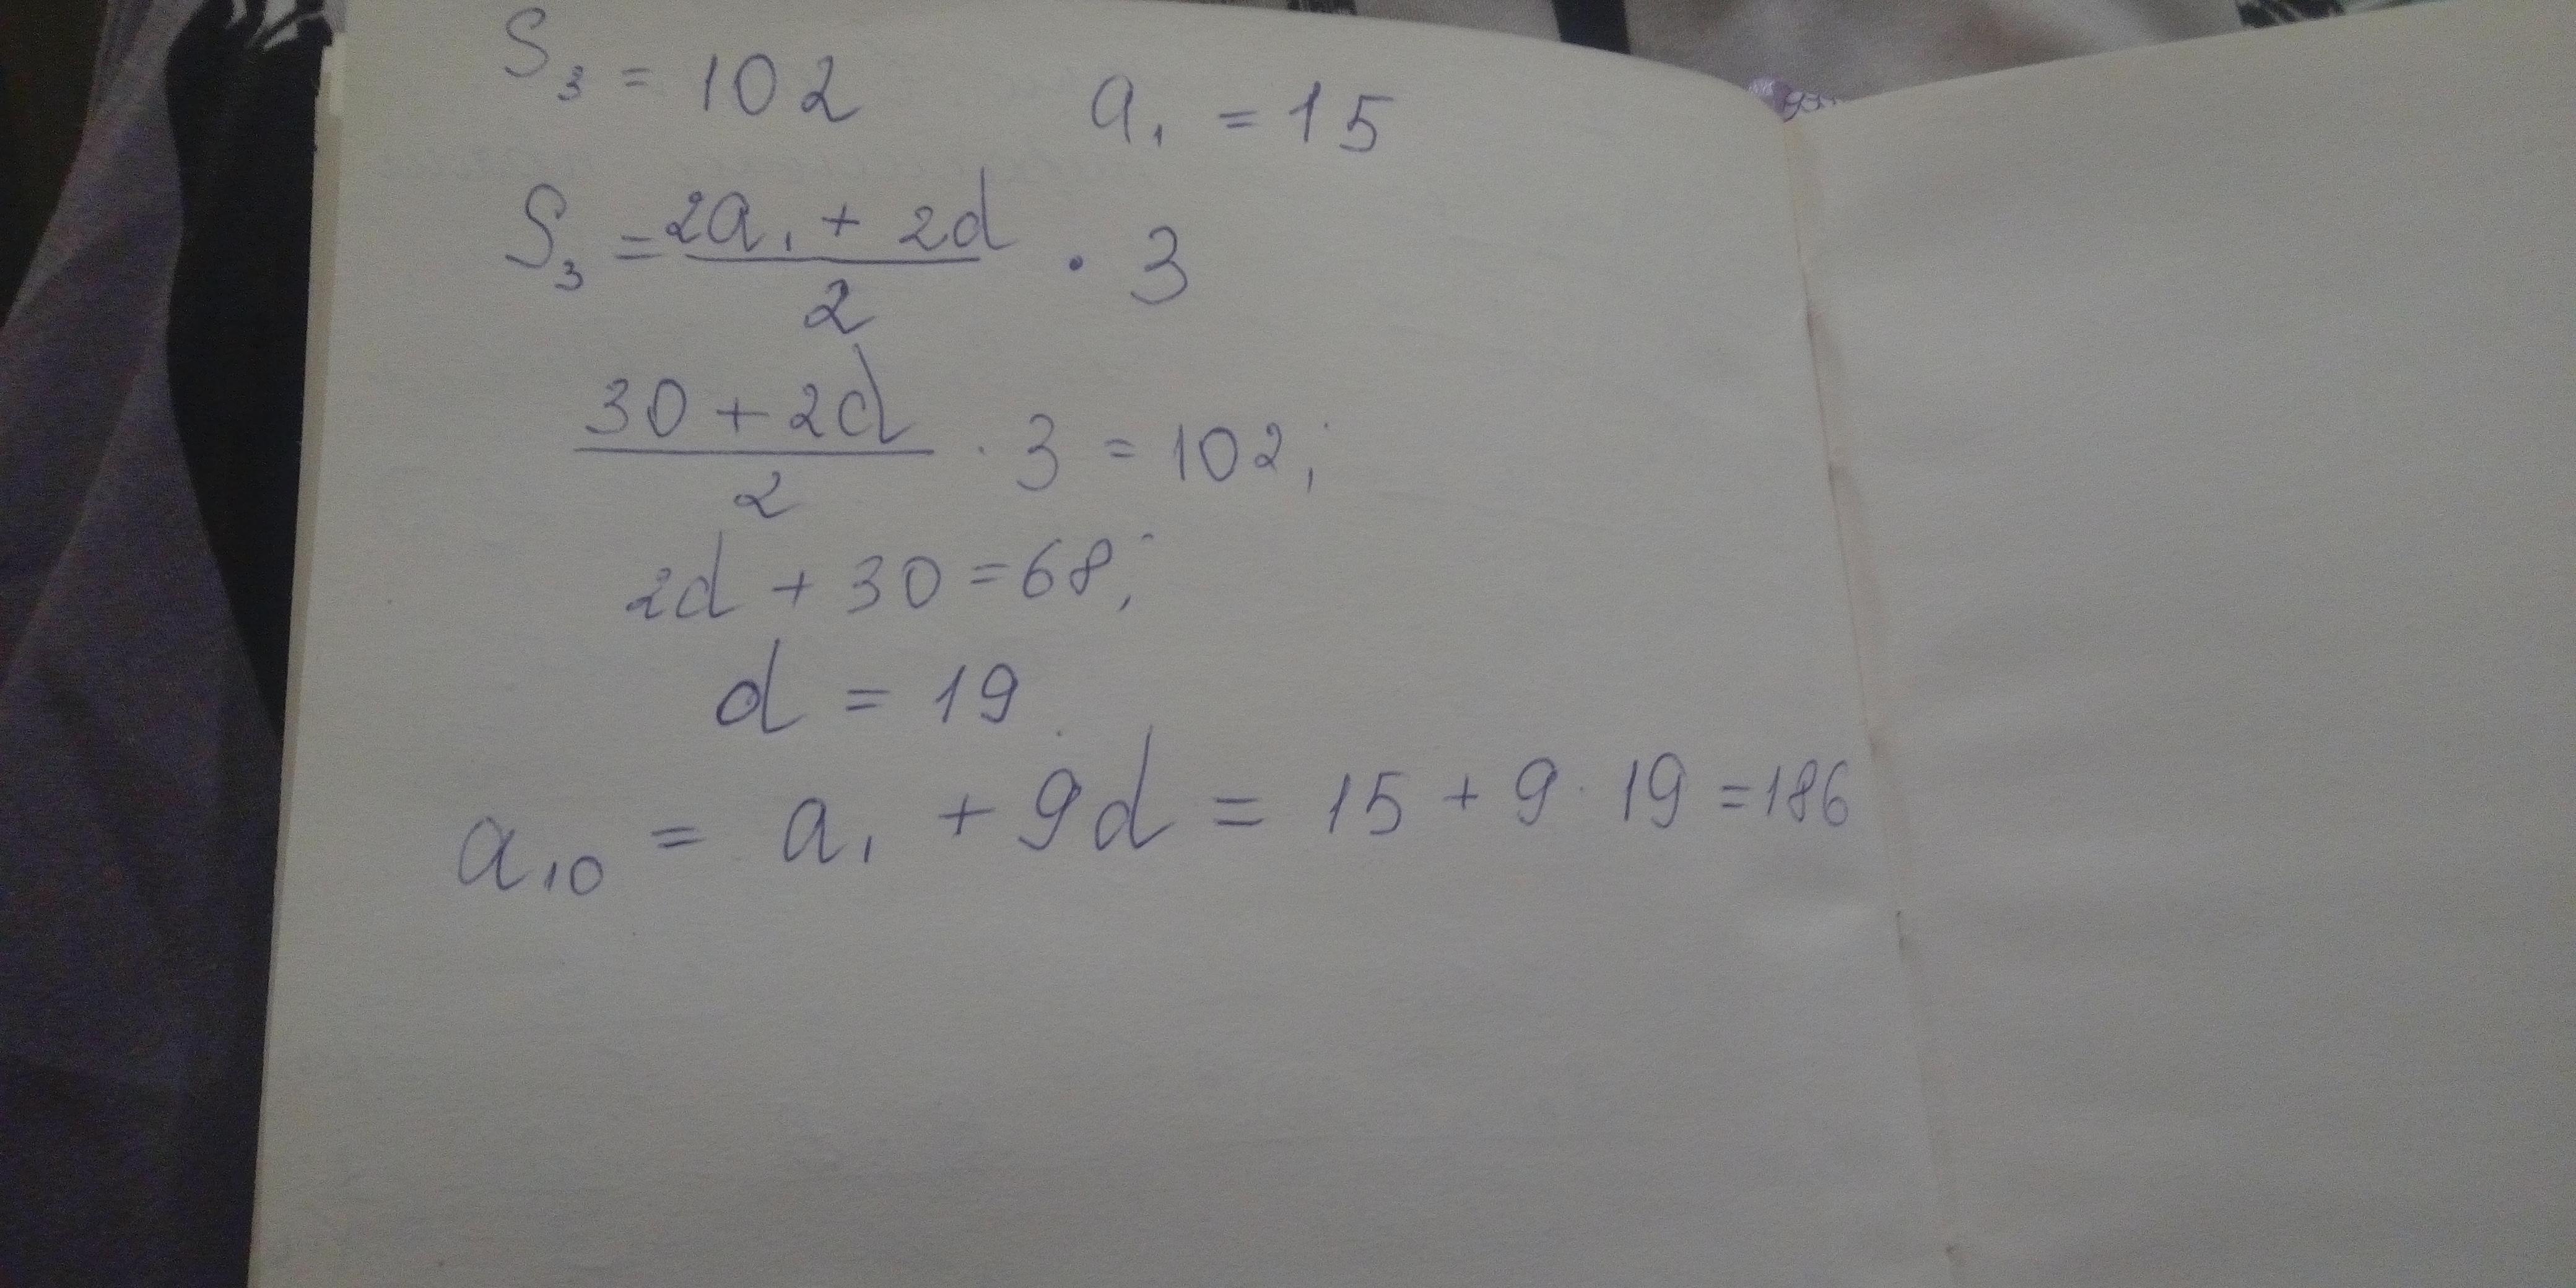 S₃ = 102 a₁ = 15
S₃ = (2a₁ + 2d)/2 · 3
(30 + 2d)/2 · 3 = 102;
2d + 30 = 68;
d = 19
a₁₀ = a₁ + 9d = 15 + 9 · 19 = 186